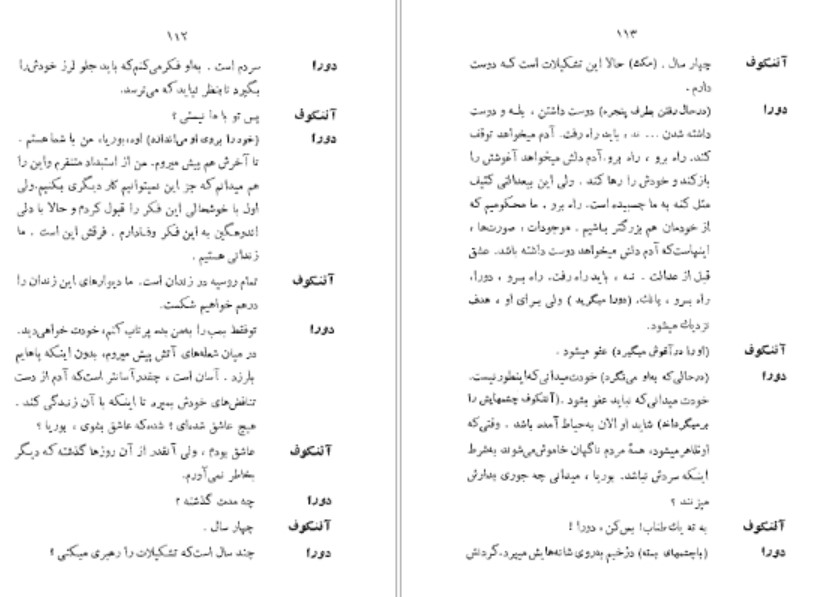 ۱۱۲
دورا سردم است . به‌او فکرمی‌کنم‌که باید جلو لرز خودش‌را
بگیرد تابنظر نیاید که می‌ترسد.
آننکوف پس تو با ما نیستی ؟
دورا (خودرا بروی او می‌اندازد) اوه،بوریا، من با شما هستم .
تا آخرش هم پیش میروم. من از استبداد متنفرم واین را
هم میدانم‌که جز این نمیتوانیم کار دیگری بکنیم.ولی
اول با خوشحالی این فکر را قبول کردم و حالا با دلی
اندوهگین به این فکر وفادارم . فرقش این است . ما
زندانی هستیم .
آننکوف تمام روسیه در زندان است. ما دیوارهای این زندان را
درهم خواهیم شکست.
دورا توفقط بمب را به‌من بده پرتاب کنم، خودت خواهی‌دید.
در میان شعله‌های آتش پیش میروم، بدون اینکه پاهایم
بلرزد . آسان است ، چقدرآسانتر است‌که آدم از دست
تناقض‌های خودش بمیرد تا اینکه با آن زندگی کند .
هیچ عاشق شده‌ای ؟ شده‌که عاشق بشوی ، بوریا ؟
آننکوف عاشق بودم ، ولی آنقدر از آن روزها گذشته که دیگر
بخاطر نمی‌آورم.
دورا چه مدت گذشته ؟
آننکوف چهار سال .
دورا چند سال است‌که تشکیلات را رهبری میکنی ؟
۱۱۳
آننکوف چهار سال . (مکث) حالا این تشکیلات است که دوست
دارم .
دورا (درحال‌رفتن بطرف پنجره) دوست داشتن ، بله و دوست
داشته شدن ... نه ، باید راه رفت. آدم میخواهد توقف
کند. راه برو ، راه برو.آدم دلش میخواهد آغوشش را
بازکند و خودش را رها کند . ولی این بیعدالتی کثیف
مثل کنه به ما چسبیده است. راه برو . ما محکومیم که
از خودمان هم بزرگتر باشیم . موجودات ، صورت‌ها ،
اینهاست‌که آدم دلش میخواهد دوست داشته باشد. عشق
قبل از عدالت . نه ، باید راه رفت. راه برو ، دورا،
راه برو ، یانك. (دورا میگرید ) ولی برای او ، هدف
نزدیك میشود.
آننکوف (اورا درآغوش میگیرد) عفو میشود .
دورا (درحالی‌که به‌او می‌نگرد) خودت‌میدانی‌که‌اینطور‌نیست.
خودت میدانی‌که نباید عفو بشود .(آننکوف چشمهایش را
برمیگرداند) شاید او الان به‌حیاط آمده باشد . وقتی‌که
اوظاهر‌میشود، همهٔ مردم ناگهان خاموش‌می‌شوند به‌شرط
اینکه سردش نباشد. بوریا ، میدانی چه جوری بدارش
میزنند ؟
آننکوف به ته یك‌طناب! بس‌کن، دورا !
دورا (باچشمهای بسته) دژخیم به‌روی شانه‌هایش میپرد.گردنش